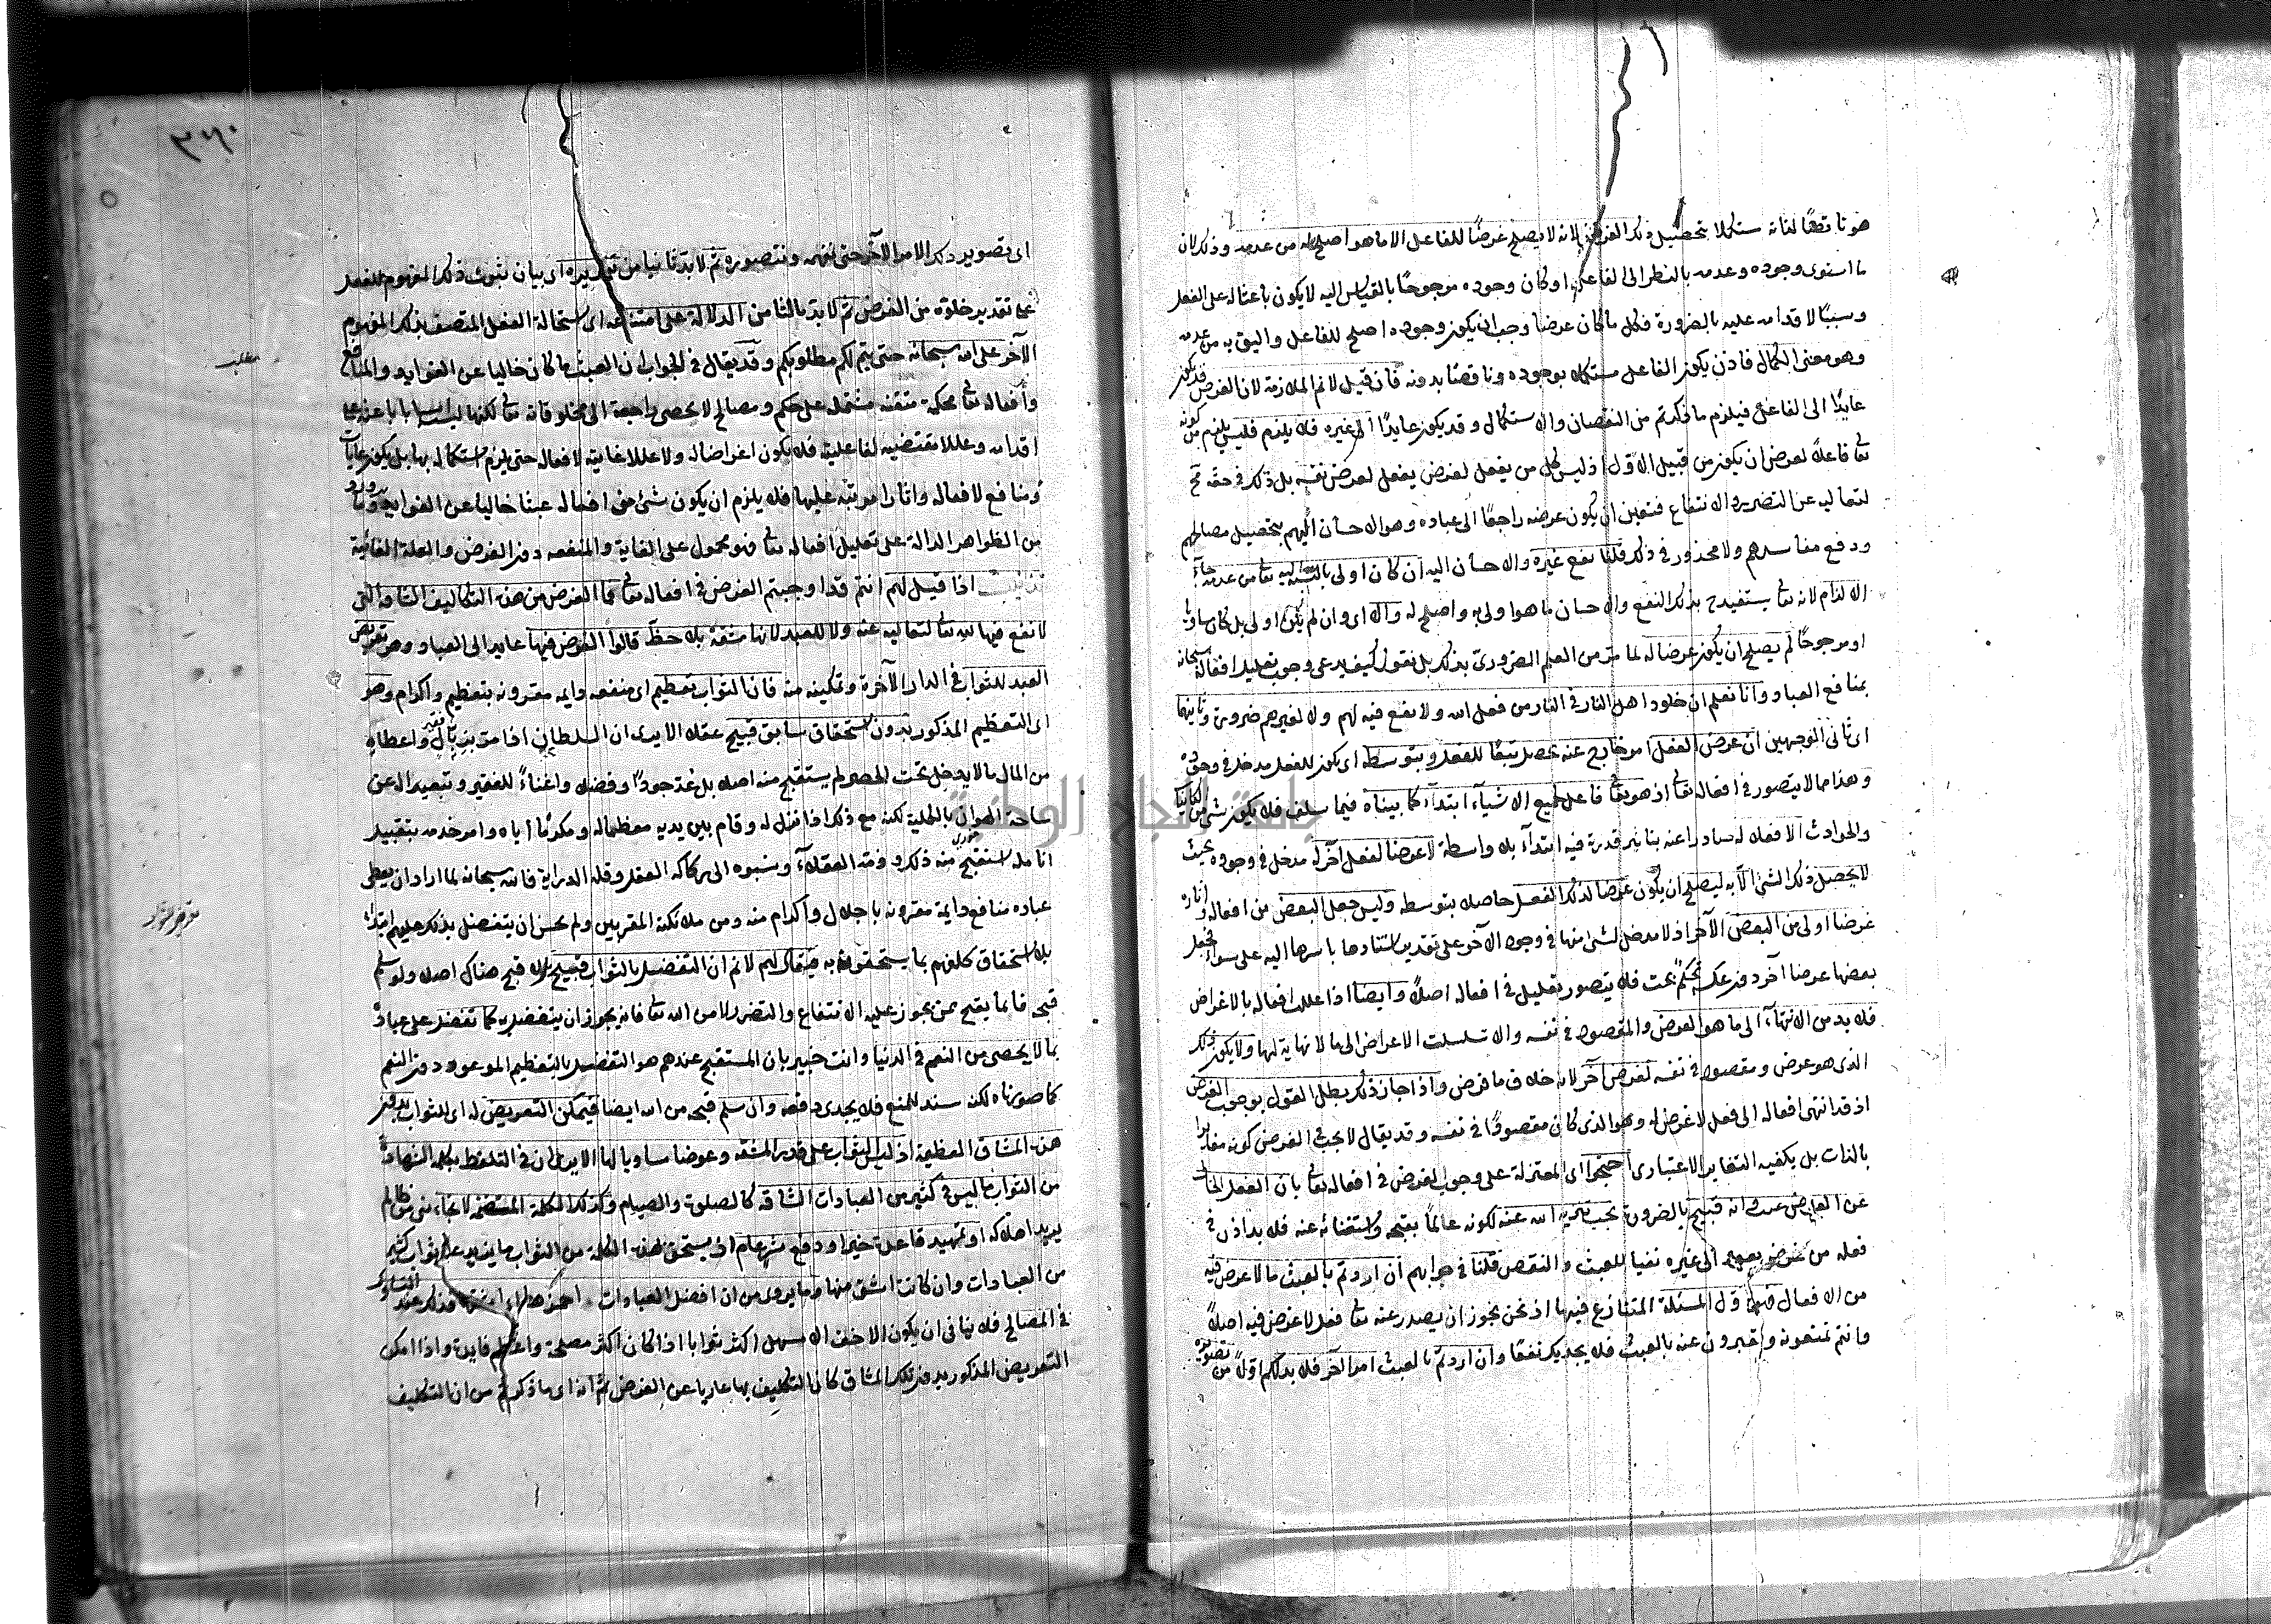 هو ناقصًا لذاته مستكملا بتحصيل ذلك الغرض لانه لا يصلح غرضًا للفاعل الا ما هو اصلح له من عدمه وذلك لان
ما استوى وجوده وعدمه بالنظر الى الفاعل او كان وجوده مرجوحًا بالقياس اليه لا يكون باعثا له على الفعل
وسببًا لاقدامه عليه بالضرورة فكل ما كان غرضا وجب ان يكون وجوده اصلح للفاعل واليق به من عدمه
وهو معنى الكمال فاذن يكون الفاعل مستكملا بوجوده وناقصًا بدونه فان قيل لا نم الملازمة لان الغرض قد يكون
عايدًا الى الفاعل فيلزم ما ذكرتم من النقصان والاستكمال وقد يكون عايدًا الى غيره فلا يلزم فليس يلزم من كونه
تعالى فاعلًا لغرض ان يكون من قبيل الاول اذ ليس كل من يفعل لغرض يفعل لغرض نفسه بل ذلك في حقه تع
لتعاليه عن التضرر والانتفاع فتعين ان يكون غرضه راجعًا الى عباده وهو الاحسان اليهم بتحصيل مصالحهم
ودفع مفاسدهم ولا محذور في ذلك قلنا نفع غيره والاحسان اليه ان كان اولى بالنسبة اليه تعالى من عدمه جاء
الالزام لانه تعالى يستفيد ح بذلك النفع والاحسان ما هو اولى به واصلح له والا اى وان لم يكن اولى بل كان مساويًا
او مرجوحًا لم يصلح ان يكون غرضا له لما مر من العلم الضروري بذلك بل نقول كيف يدعى وجوب تعليل افعاله سبحانه
بمنافع العباد وانا نعلم ان خلود اهل النار في النار من فعل الله ولا نفع فيه لهم ولا لغيرهم ضرورة وثانيهما
اى ثانى الوجهين ان غرض الفعل امر خارج عنه يحصل تبعًا للفعل وبتوسطه اى يكون للفعل مدخل في وجوده
وهذا مما لا يتصور في افعاله تعالى اذ هو تعالى فاعل لجميع الاشياء ابتداء كما بيناه فيما سلف فلا يكون شئ من الكاينات
والحوادث الا فعلا له صادرا عنه بتاثير قدرته فيه ابتداء بلا واسطة لا غرضا لفعل آخر له مدخل في وجوده بحيث
لا يحصل ذلك الشئ الا به ليصلح ان يكون غرضا لذلك الفعل حاصلا بتوسطه وليس جعل البعض من افعاله وآثاره
غرضا اولى من البعض الآخر اذ لا مدخل لشئ منها في وجود الآخر على تقدير استنادها باسرها اليه على سواء فجعل
بعضها غرضا آخر دون عكسه تحكم بحت فلا يتصور تعليل في افعاله اصلًا وايضًا اذا علل افعاله بالاغراض
فلا بد من الانتهاء الى ما هو الغرض والمقصود في نفسه والا تسلسلت الاغراض الى ما لا نهاية لها ولا يكون ذلك
الذى هو غرض ومقصود في نفسه لغرض آخر لانه خلاف ما فرض واذا جاز ذلك بطل القول بوجوب الغرض
اذ قد انتهى افعاله الى فعل لا غرض له وهو الذى كان مقصودًا في نفسه وقد يقال لا يجب في الغرض كونه مغايرا
بالذات بل يكفيه التغاير الاعتبارى احتجوا اى المعتزلة على وجوب الغرض في افعاله تعالى بان الفعل الخالى
عن الغرض عبث وانه قبيح بالضرورة يجب تنزيه الله عنه لكونه عالمًا بقبحه واستغنائه عنه فلا بد اذن في
فعله من غرض يعود الى غيره نفيا للعبث والنقص قلنا في جوابهم ان اردتم بالعبث ما لا غرض فيه
من الافعال فهو اول المسئلة المتنازع فيها اذ نحن نجوز ان يصدر عنه تعالى فعل لا غرض فيه اصلًا
وانتم تمنعونه وتعبرون عنه بالعبث فلا يجديكم نفعًا وان اردتم بالعبث امرا آخر فلا بد لكم اولًا من تصويره
٣٦٠
اى تصوير ذلك الامر الآخر حتى نفهمه ونتصوره ثم لا بد ثانيا من تقريره اى بيان ثبوت ذلك المفهوم للفعل
على تقدير خلوه من الغرض ثم لا بد ثالثا من الدلالة على امتناعه اى استحالة الفعل المتصف بذلك المفهوم
الآخر على الله سبحانه حتى يتم لكم مطلوبكم وقد يقال في الجواب ان العبث ما كان خاليا عن الفوايد والمنافع
مطلب
وافعاله تعالى محكمة متقنة مشتملة على حكم ومصالح لا تحصى راجعة الى مخلوقاته تعالى لكنها ليست اسبابا باعثة على
اقدامه وعللا مقتضيه لفاعليته فلا يكون اغراضا له ولا عللا غائية لافعاله حتى يلزم استكماله بها بل يكون غايات
ومنافع لافعاله واثارا مرتبة عليها فلا يلزم ان يكون شئ من افعاله عبثا خاليا عن الفوايد وما ورد
من الظواهر الدالة على تعليل افعاله تعالى فهو محمول على الغاية والمنفعه دون الغرض والعلة الغائية
تذنيب اذا قيل لهم انتم قد اوجبتم الغرض في افعاله تعالى فما الغرض من هذه التكاليف الشاقة التى
لا نفع فيها لله تعالى لتعاليه عنه ولا للعبد لانها مشقة بلا حظ قالوا الغرض فيها عايد الى العباد وهو تعريض
العبد للثواب في الدار الآخرة وتمكينه منه فان الثواب تعظيم اى منفعه دايمه مقرونه بتعظيم واكرام وهو
اى التعظيم المذكور بدون استحقاق سابق قبيح عقلا الا يرى ان السلطان اذا مر بزبال فقير واعطاه
من المال ما لا يدخل تحت الحصر لم يستقبح منه اصلا بل عد جودًا وفضلا واغناءً للفقير وتبعيدا له عن
ساحة الهوان بالكلية لكنه مع ذلك اذا نزل له وقام بين يديه معظما له ومكرمًا اياه وامر خدمه بتقبيل
انامله استقبح منه ذلك وذمه العقلاء ونسبوه الى ركاكة العقل وقلة الدراية فالله سبحانه لما اراد ان يعطى
عباده منافع دايمة مقرونه باجلال واكرام منه ومن ملائكته المقربين ولم يحسن ان يتفضل بذلك عليهم ابتداء
بلا استحقاق كلفهم ما يستحقونه به فيقال لهم لا نم ان التفضل بالثواب قبيح بل لا قبح هناك اصلا ولو سلم
قبحه فانما يقبح ممن يجوز عليه الانتفاع والتضرر لا من الله تعالى فانه يجوز ان يتفضل به كما تفضل على عباده
بما لا يحصى من النعم في الدنيا وانت خبير بان المستقبح عندهم هو التفضل بالتعظيم الموعود دون النعم
كما صورناه لكنه سند للمنع فلا يجدى دفعه وان سلم قبحه من الله ايضا فيمكن التعريض له اى للثواب بدون
هذه المشاق العظيمة اذ ليس الثواب على قدر المشقه وعوضا مساويا لها الا يرى ان في التلفظ بكلمة الشهادة
من الثواب ما ليس في كثير من العبادات الشاقه كالصلوة والصيام وكذلك الكلمة المتضمنه لانجاء نبى من ظالم
يريد اهلاكه او تمهيد قاعدة خير او دفع شر عام اذ يستحق بهذه الكلمة من الثواب ما يزيد على ثواب كثير
من العبادات وان كانت اشق منها وما يروى من ان افضل العبادات احمزها اى اشقها فذلك عند التساوى
في المصالح فلا ينافى ان يكون الاخف الاسهل اكثر ثوابا اذا كان اكثر مصلحة واعظم فايدة واذا امكن
التعريض المذكور بدون تلك المشاق كان التكليف بها عاريا عن الغرض ثم انه اى ما ذكرتم من ان التكليف